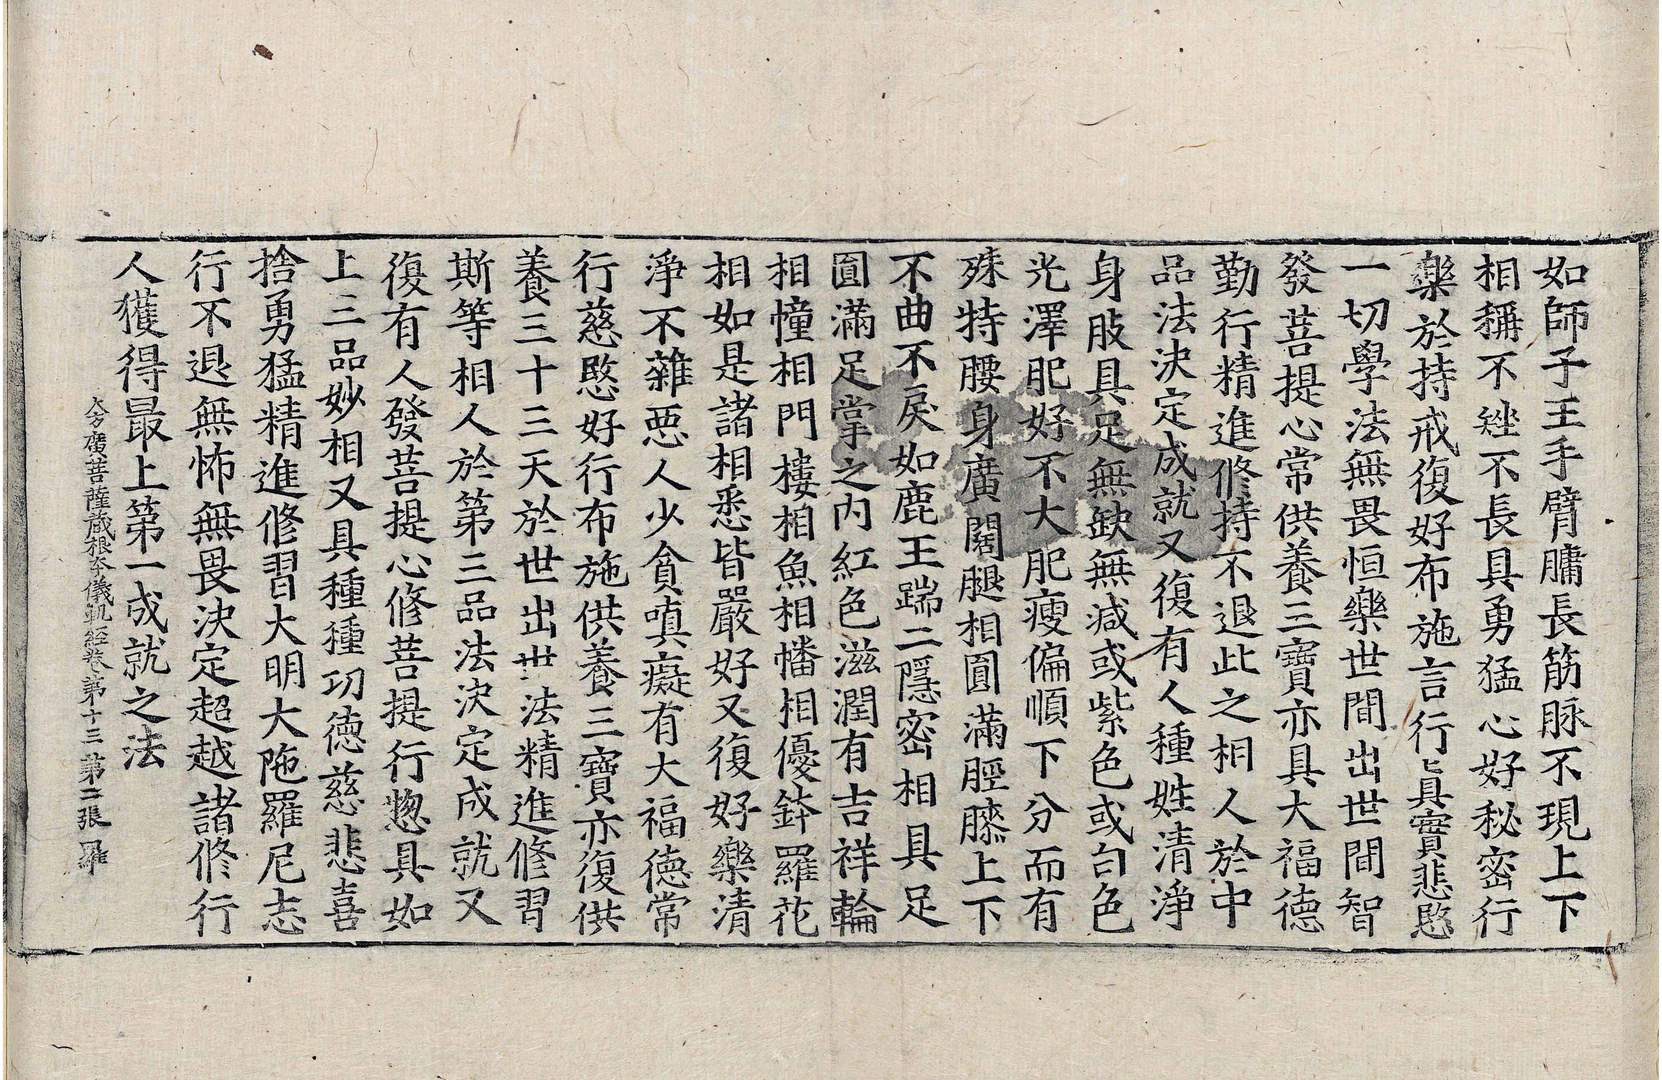 如師子王手臂𦟛長筋脉不現上下
相稱不矬不長具勇猛心好秘密行
樂於持戒復好布施言行真實悲愍
一切學法無畏恒樂世間出世間智
發菩提心常供養三寶亦具大福德
勤行精進修持不退此之相人於中
品法決定成就又復有人種姓清淨
身肢具足無缺無減或紫色或白色
光澤肥好不大肥瘦偏順下分而有
殊特腰身廣闊腿相圓滿脛膝上下
不曲不戾如鹿王踹二隱密相具足
圓滿足掌之內紅色滋潤有吉祥輪
相幢相門樓相魚相幡相優鉢羅花
相如是諸相悉皆嚴好又復好樂清
淨不雜惡人少貪嗔癡有大福德常
行慈愍好行布施供養三寶亦復供
養三十三天於世出世法精進修習
斯等相人於第三品法決定成就又
復有人發菩提心修菩提行揔具如
上三品妙相又具種種功德慈悲喜
捨勇猛精進修習大明大陁羅尼志
行不退無怖無畏決定超越諸修行
人獲得最上第一成就之法
大方廣菩薩藏根本儀軌經卷第十三 第二張 羅